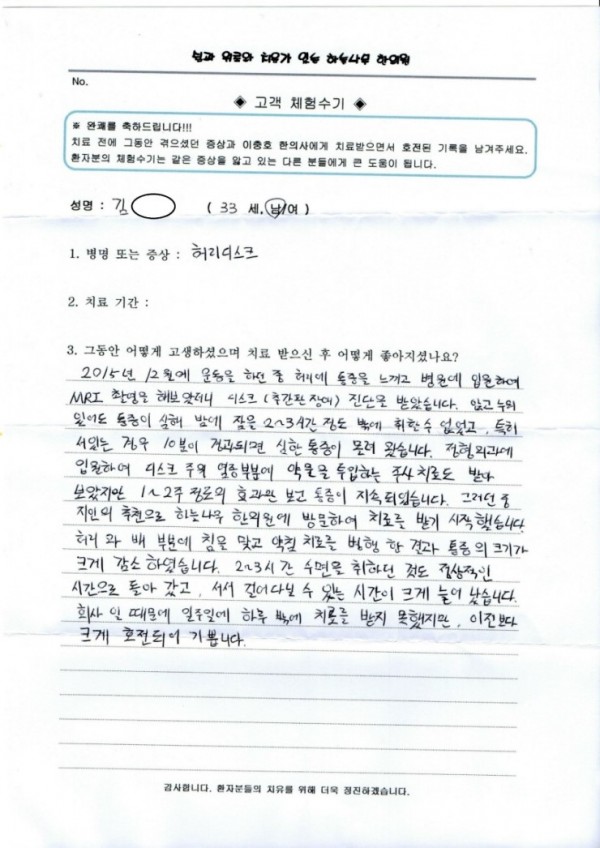 쉼과 위로와 치유가 있는 하늘나무 한의원
No.
◈ 고객 체험수기 ◈
※ 완쾌를 축하드립니다!!!
치료 전에 그동안 겪으셨던 증상과 이충호 한의사에게 치료받으면서 호전된 기록을 남겨주세요.
환자분의 체험수기는 같은 증상을 앓고 있는 다른 분들에게 큰 도움이 됩니다.
성명 : 김 ( 33 세, 남/여 )
1. 병명 또는 증상 : 허리디스크
2. 치료 기간 :
3. 그동안 어떻게 고생하셨으며 치료 받으신 후 어떻게 좋아지셨나요?
2015년 12월에 운동을 하던 중 허리에 통증을 느끼고 병원에 입원하여
MRI 촬영을 해보았더니 디스크 (추간판 장애) 진단을 받았습니다. 앉고 누워
있어도 통증이 심해 밤에 잠을 2~3시간 정도 밖에 취할 수 없었고, 특히
서있는 경우 10분이 경과되면 심한 통증이 몰려 왔습니다. 정형외과에
입원하여 디스크 주위 염증부분에 약물을 투입하는 주사치료도 받아
보았지만 1~2주 정도의 효과만 보고 통증이 지속되었습니다. 그러던 중
지인의 추천으로 하늘나무 한의원에 방문하여 치료를 받기 시작했습니다.
허리 와 배 부분에 침을 맞고 약침 치료를 병행 한 결과 통증의 크기가
크게 감소 하였습니다. 2~3시간 수면을 취하던 것도 정상적인
시간으로 돌아 갔고, 서서 걸어다닐 수 있는 시간이 크게 늘어 났습니다.
회사 일 때문에 일주일에 하루 밖에 치료를 받지 못했지만, 이전보다
크게 호전되어 기쁩니다.
감사합니다. 환자분들의 치유를 위해 더욱 정진하겠습니다.